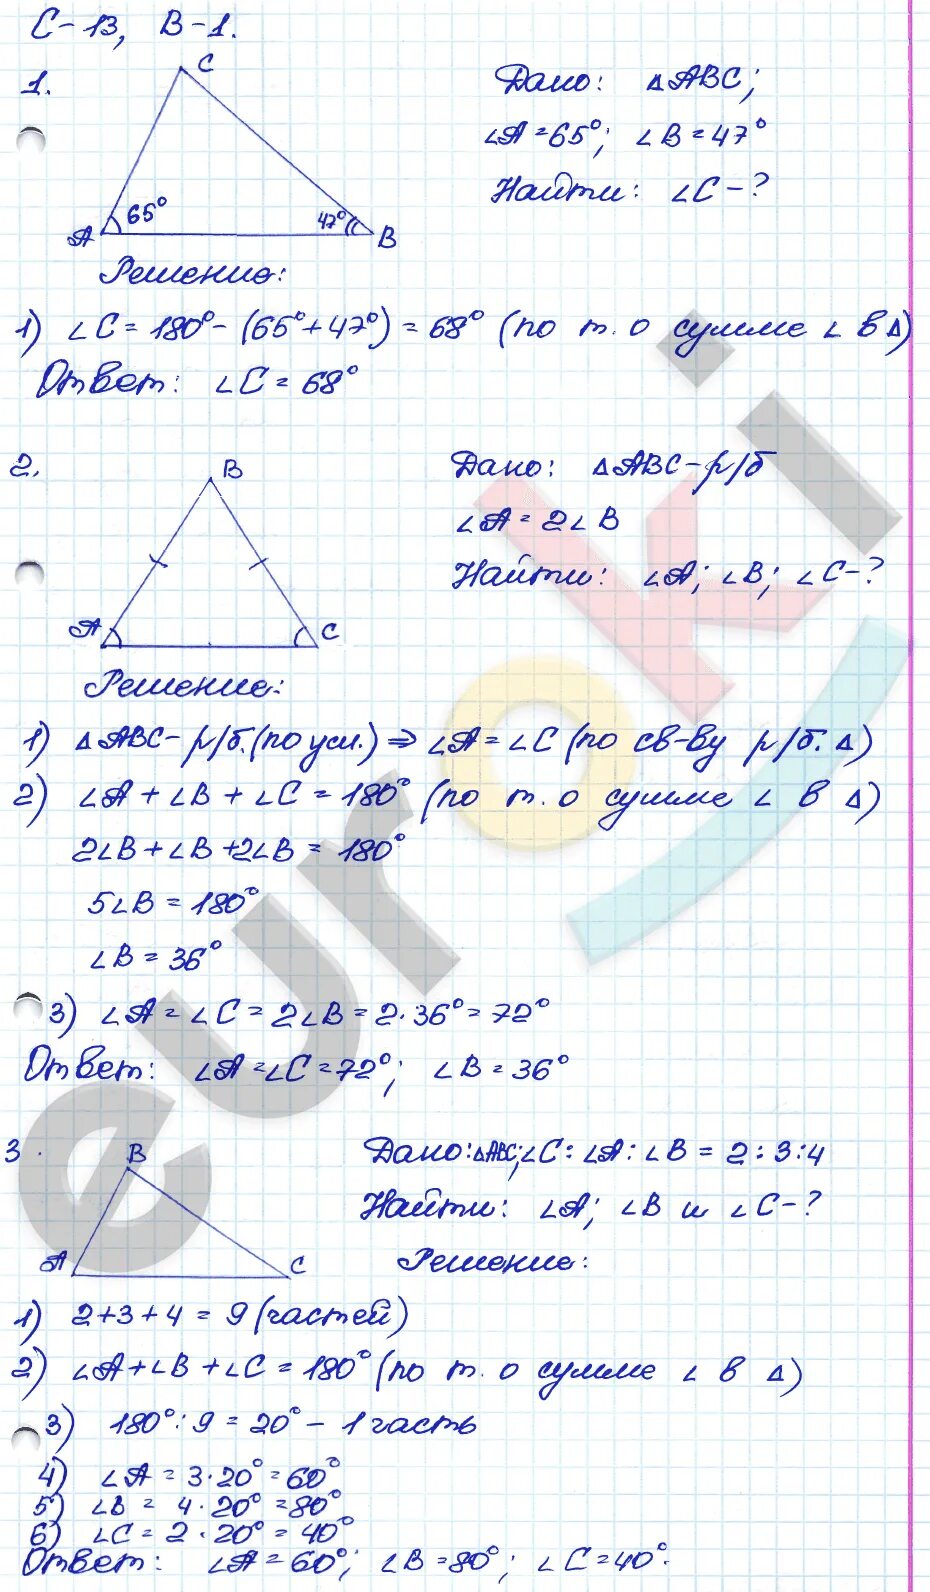 С-13, В-1.
1.
C
65°
47°
A
B
Дано: △ABC;
∠A=65°; ∠B=47°
Найти: ∠C-?
Решение:
1) ∠C = 180°-(65°+47°) = 68° (по т. о сумме ∠ в △)
Ответ: ∠C = 68°
2.
B
A
C
Дано: △ABC-р/б
∠A = 2∠B
Найти: ∠A; ∠B; ∠C-?
Решение:
1) △ABC-р/б.(по усл.) ⇒ ∠A = ∠C (по св-ву р/б. △)
2) ∠A + ∠B + ∠C = 180° (по т. о сумме ∠ в △)
2∠B + ∠B + 2∠B = 180°
5∠B = 180°
∠B = 36°
3) ∠A = ∠C = 2∠B = 2·36° = 72°
Ответ: ∠A = ∠C = 72°; ∠B = 36°
3.
B
A
C
Дано: △ABC; ∠C : ∠A : ∠B = 2 : 3 : 4
Найти: ∠A; ∠B и ∠C-?
Решение:
1) 2+3+4 = 9 (частей)
2) ∠A + ∠B + ∠C = 180° (по т. о сумме ∠ в △)
3) 180° : 9 = 20° - 1 часть
4) ∠A = 3·20° = 60°
5) ∠B = 4·20° = 80°
6) ∠C = 2·20° = 40°
Ответ: ∠A = 60°; ∠B = 80°; ∠C = 40°.
euroki